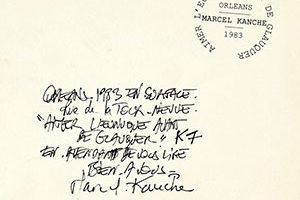 AIMER L'E DE GLAUQUER
ORLEANS
MARCEL KANCHE
1983
ORLEANS. 1983 EN SURFACE.
rue de la TOUR NEUVE.
"AIMER L'EUNUQUE AVANT
DE GLAUQUER" K7
EN ATTENDANT DE VOUS LIRE
BIEN A VOUS
Marcel. Kanche